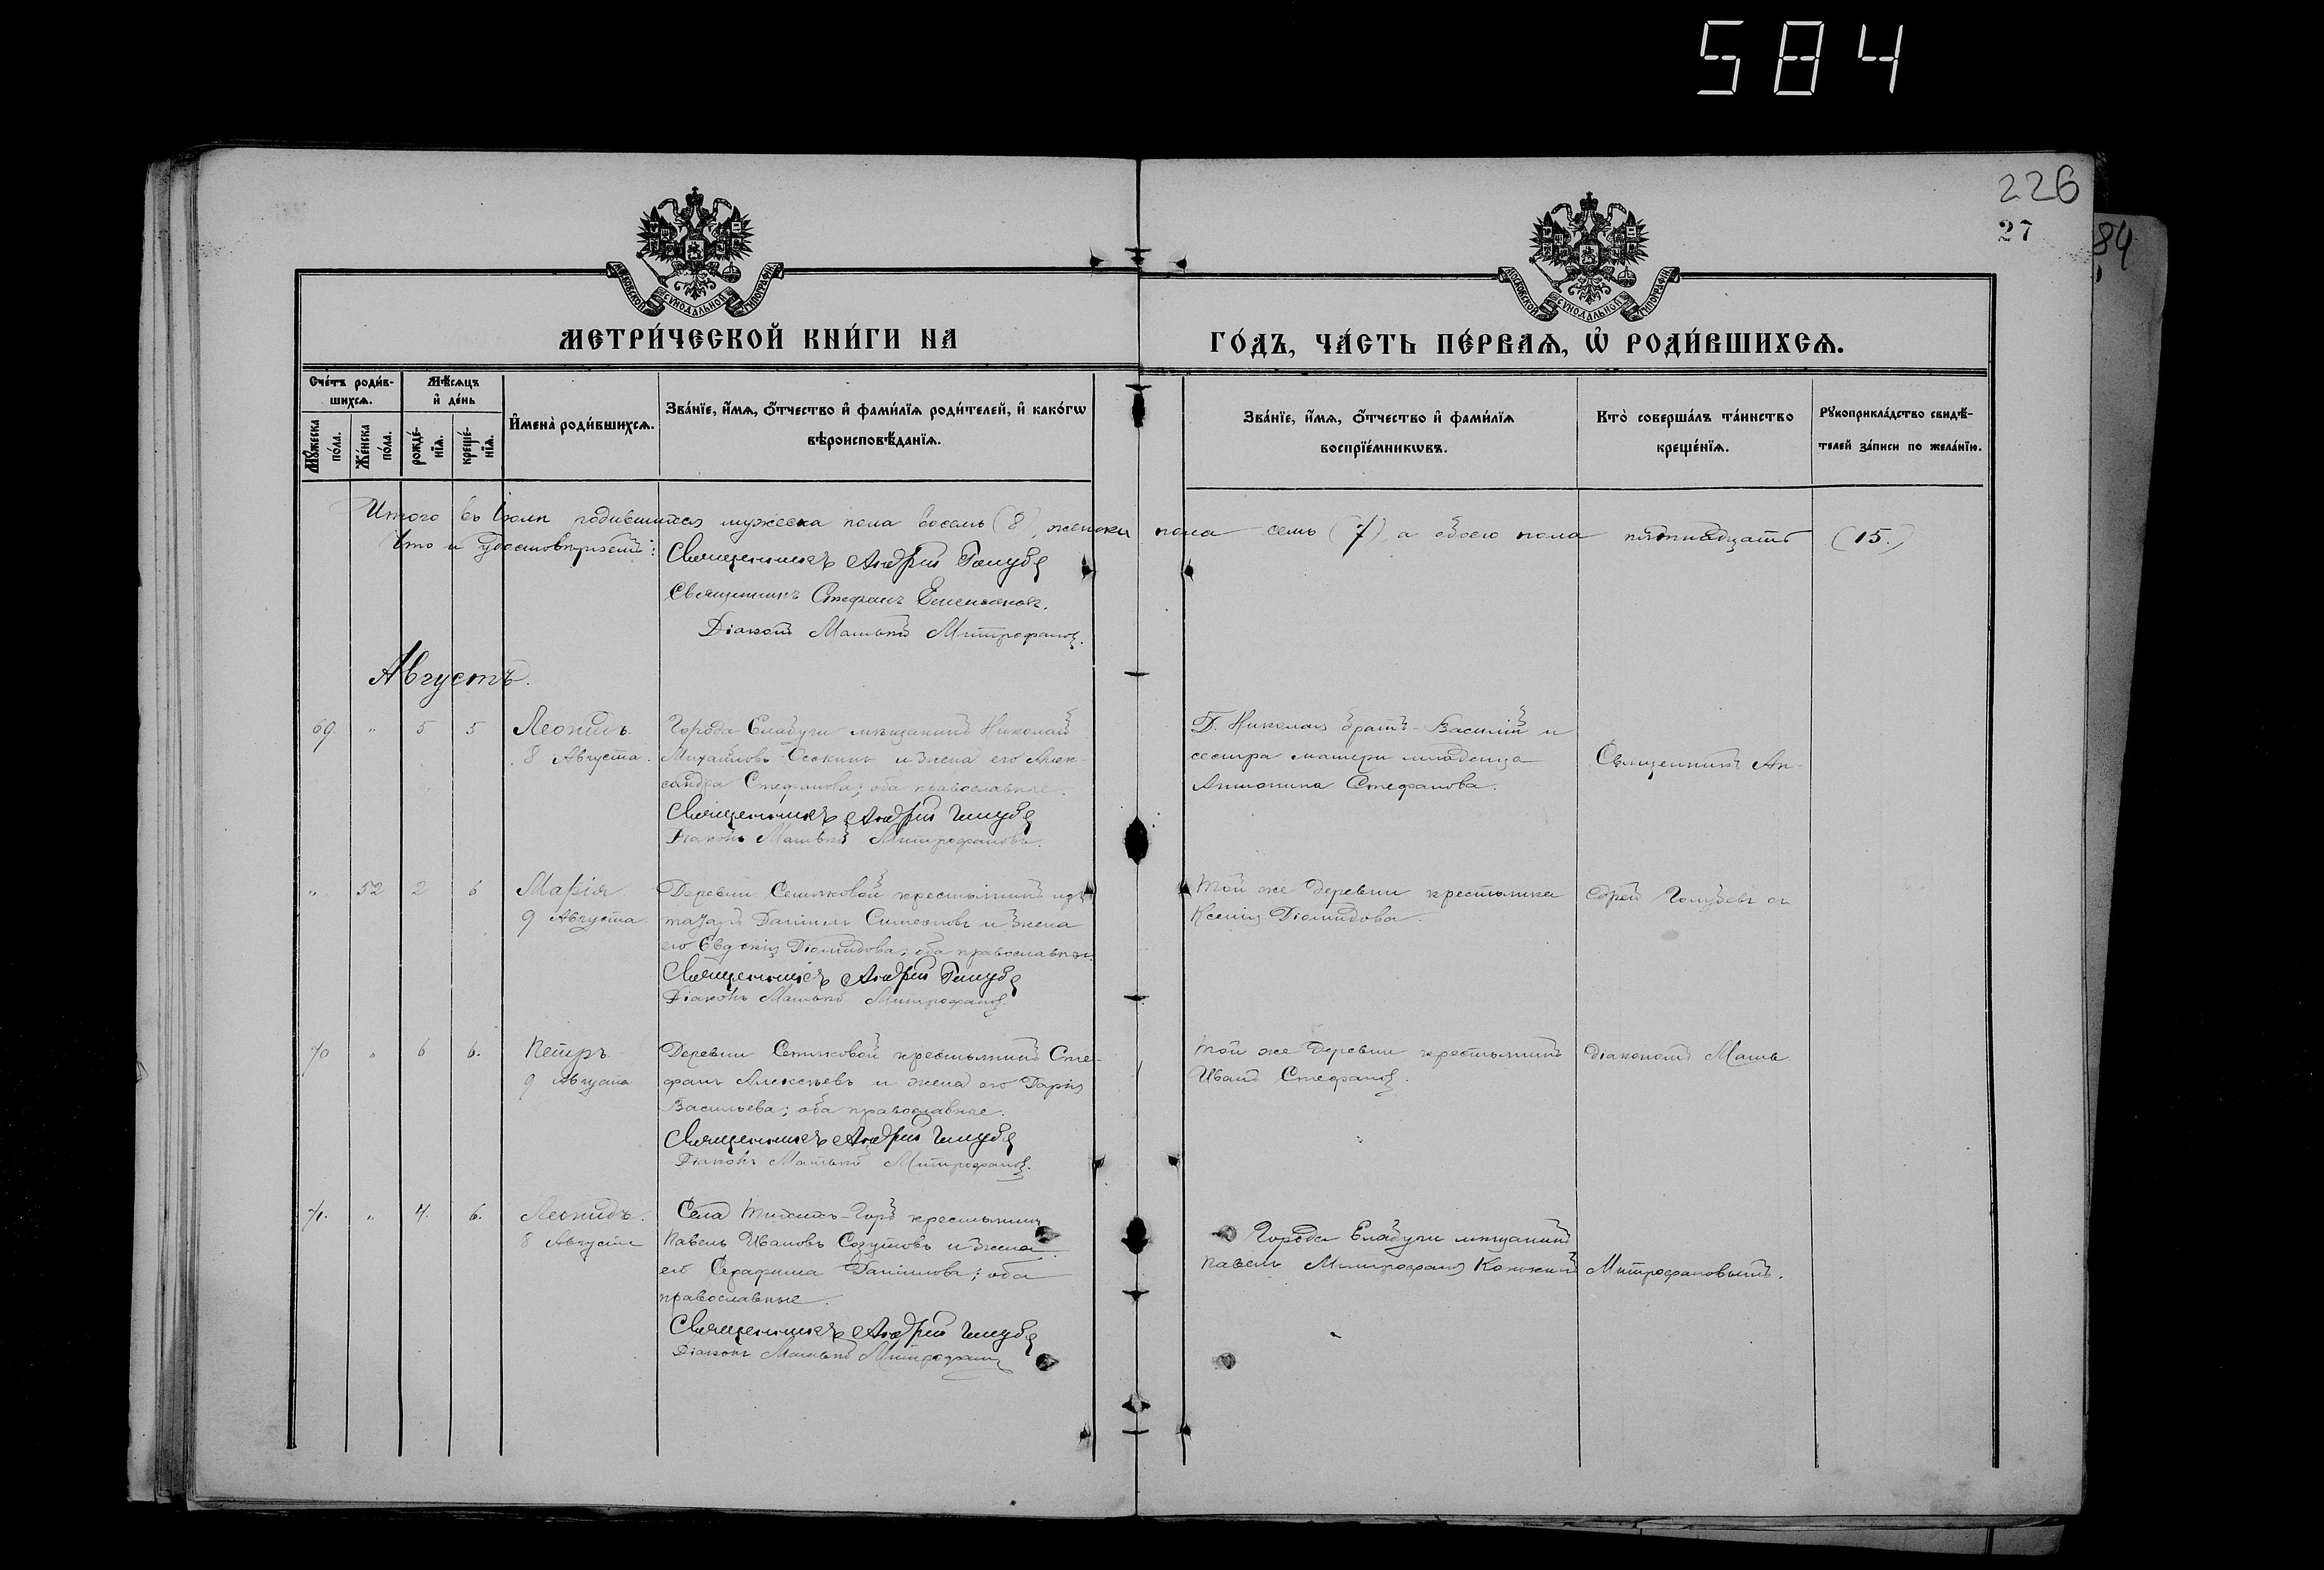 584
226
27
84
МОСКОВСКОЙ СѴНОДАЛЬНОЙ ТИПОГРАФІИ
МОСКОВСКОЙ СѴНОДАЛЬНОЙ ТИПОГРАФІИ
МЕТРИ́ЧЕСКОЙ КНИ́ГИ НА ГО́ДЪ, ЧА́СТЬ ПЕ́РВАѦ, Ѽ РОДИ́ВШИХСѦ.
Сче́тъ роди́в-
шихсѧ.
Мѣ́сѧцъ
и҆ де́нь
Мꙋ́жеска
по́ла.
Же́нска
по́ла.
рожде́-
нїѧ.
креще́-
нїѧ.
И҆мена̀ роди́вшихсѧ.
Зва́нїе, и҆́мѧ, ѻ҆́тчество и҆ фами́лїѧ роди́телей, и҆ како́гѡ
вѣроисповѣ́данїѧ.
Зва́нїе, и҆́мѧ, ѻ҆́тчество и҆ фами́лїѧ
воспрїе́мникѡвъ.
Кто̀ соверша́лъ та́инство
креще́нїѧ.
Рꙋкоприкла́дство свидѣ́-
телей за́писи по жела́нїю.
Итого въ Іюлѣ родившихся мужеска пола восемь (8), женска пола семь (7), а обоего пола пятнадцать (15.)
Что и удостовѣряетъ:
Священникъ Андрей Голубе
Священникъ Стефанъ
Діаконъ Матвѣй Митрофановъ.
Августъ.
69. " 5 5 Леонидъ.
8 Августа.
Города Елабуги мѣщанинъ Николай
Михайловъ Осокинъ и жена его Алек-
сандра Стефанова; оба православные.
Священникъ Андрей Голубе
Діаконъ Матвѣй Митрофановъ.
Г. Николая братъ Василій и
сестра матери младенца
Антонина Стефанова.
Священникъ Ан-
" 52 2 6 Марія
9 Августа.
Деревни крестьянинъ
Даніилъ Симеоновъ и жена
его Евдокія Діомидова; оба православные.
Священникъ Андрей Голубе
Діаконъ Матвѣй Митрофановъ.
Той же деревни крестьянка
Ксенія Діомидова.
дрей Голубевъ съ
70 " 6 6. Петръ.
9 Августа
Деревни крестьянинъ Сте-
фанъ Алексѣевъ и жена его Дарія
Васильева; оба православные.
Священникъ Андрей Голубе
Діаконъ Матвѣй Митрофановъ.
Той же деревни крестьянинъ
Иванъ Стефановъ.
діакономъ Матв.
71. " 4. 6. Леонидъ.
8 Августа
Села Горъ крестьянинъ
Павелъ Ивановъ и жена
его Серафима Даніилова; оба
православные.
Священникъ Андрей Голубе
Діаконъ Матвѣй Митрофановъ
Города Елабуги мѣщанинъ
Павелъ Митрофановъ
Митрофановымъ.